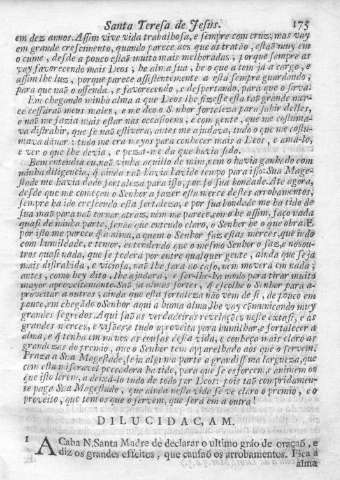 Santa Teresa de Jesus. 175
em dez annos. Assim vive vida trabalhosa, e sempre com cruz; mas vay
em grande crescimento, quando parece aos que as tratão, estaõ muy em
o cume; desde a pouco estaõ muito mais melhoradas; porque sempre as
vay favorecendo mais Deos; he alma sua, he o que a tem já a cargo, e
assim lhe luz, porque parece assistentemente a está sempre guardando,
para que naõ o offenda, e favorecendo, e despertando, para que o sirva.
Em chegando minha alma a que Deos lhe fizesse esta taõ grande mer-
ce cessaraõ meus males, e me deu o Senhor fortaleza para sahir delles,
e naõ me fazia mais estar nas occasioens, e com gente, que me costuma-
va distrahir, que se naõ estivera, antes me ajudava, tudo o que me costu-
mava dánar: tudo me era meyos para conhecer mais a Deos, e ama-lo,
e ver o que lhe devia, e pezar-me da que havia sido.
Bem entendia eu naõ vinha aquillo de mim, nem o havia ganhado com
minha diligencia, q̃ ainda naõ havia havido tempo para isso: Sua Mage-
stade me havia dado fortaleza para isso, por sò sua bondade. Ate agora,
desde que me começou o Senhor a fazer esta merce destes arrobamentos,
sempre ha ido crescendo esta fortaleza, e por sua bondade me ha tido de
sua maõ para naõ tornar atraz, nem me parece, como he assim, faço nada
quasi de minha parte, senaõ que entendo claro, o Senhor he o que obra. E
por isto me parece q̃ a alma, a quem o Senhor faz estas merces, que indo
com humildade, e temor, entendendo que o mesmo Senhor o faz, e nosou-
tros quasi nada, que se poderá por entre qualquer gente, ainda que seja
mais distrahida, e viciosa, naõ lhe fará ao caso, nem moverá em nada;
antes, como hey dito, lhe ajudará, e ser-lhe-ha modo para tirar muito
mayor aproveitamento. Saõ já almas fortes, q̃ escolhe o Senhor para a-
proveitar a outras; ainda que esta fortaleza naõ vem de si, de pouco em
pouco, em chegado o Senhor aqui a huma alma, lhe vay communicando muy
grandes segredos. Aqui saõ as verdadeiras revelações neste extasi, e as
grandes merces, e visões, e tudo aproveita para humilhar, e fortalecer a
alma, e q̃ tenha em menos as cousas desta vida, e conheça mais claro as
grandezas do premio, que o Senhor tem aparelhado aos que o servem.
Praza a Sua Magestade, seja alguma parte a grandissima largueza, que
com esta miseravel peccadora ha tido, para que se esforcem, e animem os
que isto lerem, a deixá-lo tudo de todo por Deos: pois taõ cumpridamen-
te paga Sua Magestade, que ainda nesta vida se ve claro o premio, e o
proveito, que tem os que o servem, que será em a outra!
DILUCIDAC,AM.
1 ACaba N. Santa Madre de declarar o ultimo gráo de oraçaõ, e
diz os grandes effeitos, que causaõ os arrobamentos. Fica a
alma